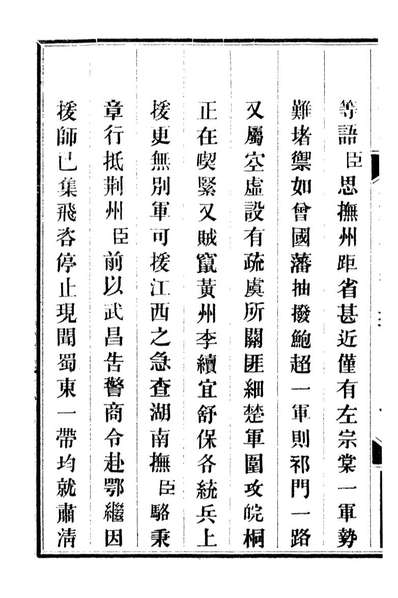 等語臣思撫州距省甚近僅有左宗棠一軍勢
難堵禦如曾國藩抽撥鮑超一軍則祁門一路
又屬空虛設有疏虞所關匪細楚軍圍攻皖桐
正在喫緊又賊竄黃州李續宜舒保各統兵上
援更無別軍可援江西之急查湖南撫臣駱秉
章行抵荆州臣前以武昌告警商令赴鄂繼因
援師已集飛咨停止現聞蜀東一帶均就肅清